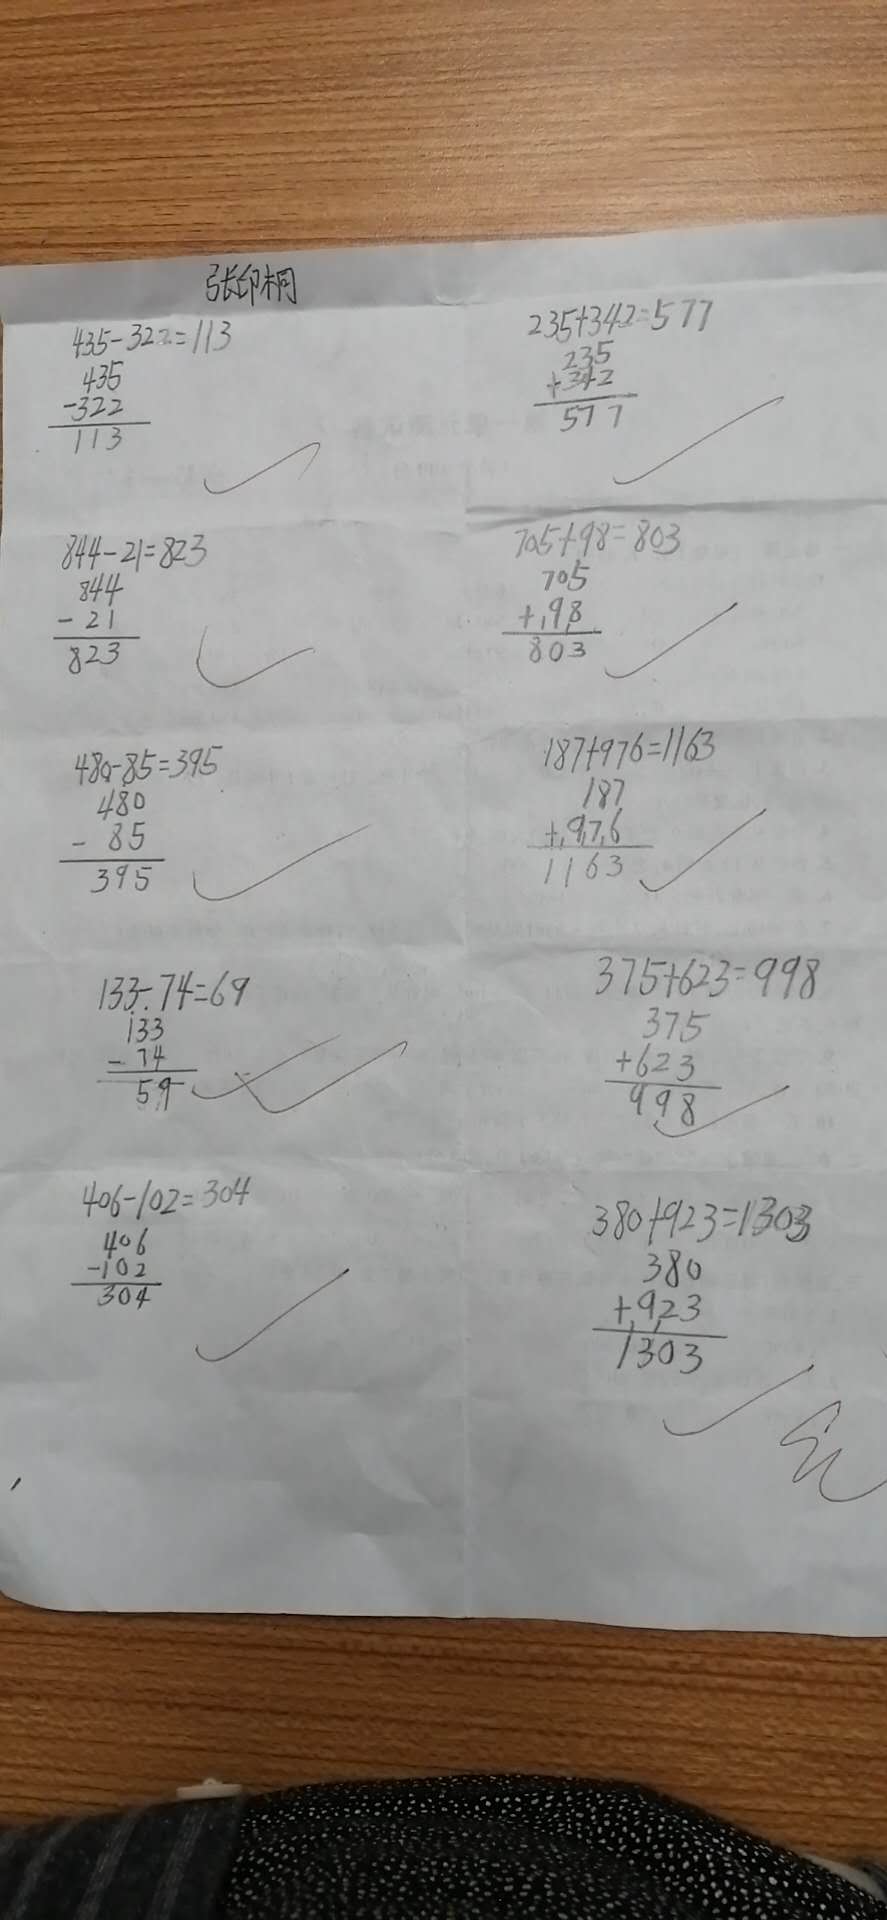 张印桐
435-322=113
435
-322
113
844-21=823
844
-21
823
480-85=395
480
- 85
395
133-74=69
133
-74
59
406-102=304
406
-102
304
235+342=577
235
+342
577
705+98=803
705
+98
803
187+976=1163
187
+976
1163
375+623=998
375
+623
998
380+923=1303
380
+923
1303